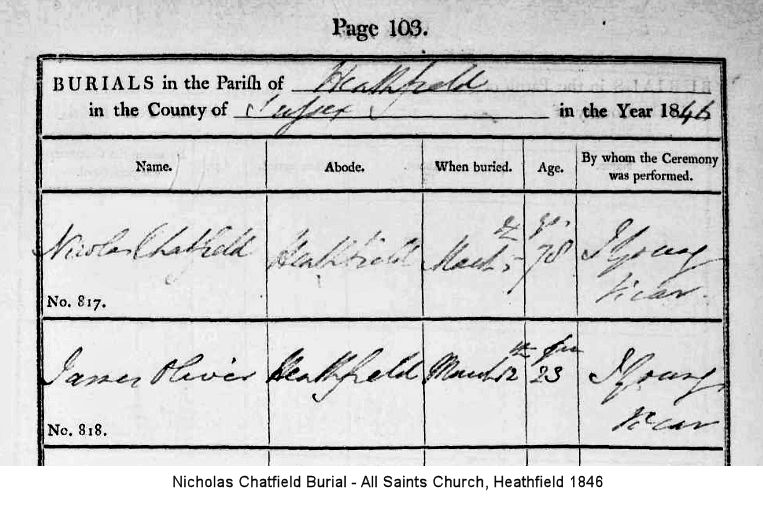 Page 103.
BURIALS in the Pariſh of Heathfield
in the County of Sussex in the Year 1846
Name. Abode. When buried. Age. By whom the Ceremony was performed.
Nicolas Chatfield Heathfield March 5 yrs 78 J Young Vicar
No. 817.
James Oliver Heathfield March 12th yrs 23 J Young Vicar
No. 818.
Nicholas Chatfield Burial - All Saints Church, Heathfield 1846